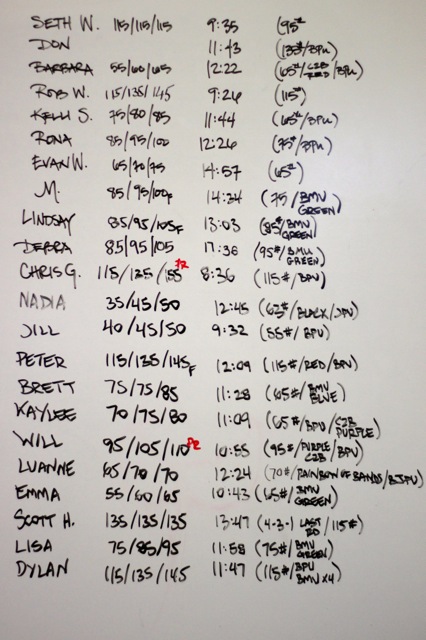 SETH W. 115/115/115 9:35 (95#)
DON 11:43 (135#/BPU)
BARBARA 55/60/65 12:22 (65#/C2B RED/BPU)
ROB W. 115/135/145 9:26 (115#)
KELLI S. 75/80/85 11:44 (65#/BPU)
RONA 85/95/100 12:26 (75#/BPU)
EVAN W. 65/70/75 14:57 (65#)
M. 85/95/100F 14:34 (75/BMU GREEN)
LINDSAY 85/95/105F 13:03 (85#/BMU GREEN)
DEBRA 85/95/105 17:38 (95#/BMU GREEN)
CHRIS G. 115/135/155 PR 8:36 (115#/BPU)
NADIA 35/45/50 12:45 (63#/BLACK/JPU)
JILL 40/45/50 9:32 (55#/BPU)
PETER 115/135/145F 12:09 (115#/RED/BPU)
BRETT 75/75/85 11:28 (65#/BMU BLUE)
KAYLEE 70/75/80 11:09 (65#/BPU/C2B PURPLE)
WILL 95/105/110 PR 10:55 (95#/PURPLE C2B/BPU)
LUANNE 65/70/70 12:24 (70#/RAINBOW OF BANDS/BJPU)
EMMA 55/60/65 10:43 (65#/BMU GREEN)
SCOTT H. 135/135/135 13:47 (4-3-1 LAST RD/115#)
LISA 75/85/95 11:58 (75#/BMU GREEN)
DYLAN 115/135/145 11:47 (115#/BPU BMU X4)